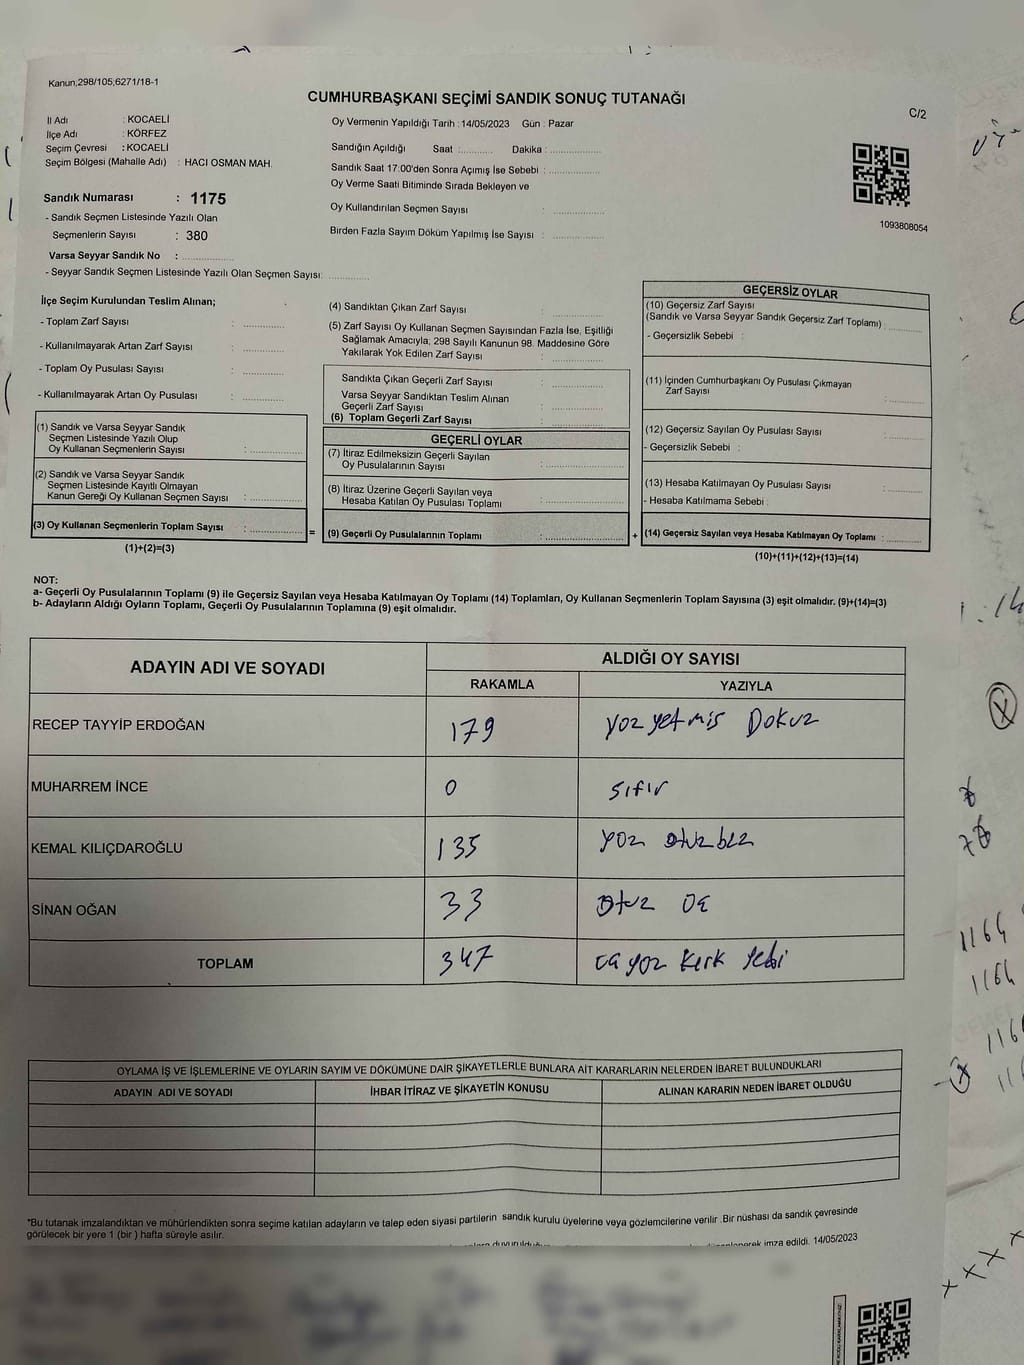 Kanun;298/105,6271/18-1
CUMHURBAŞKANI SEÇİMİ SANDIK SONUÇ TUTANAĞI
C/2
İl Adı : KOCAELİ
İlçe Adı : KÖRFEZ
Seçim Çevresi : KOCAELİ
Seçim Bölgesi (Mahalle Adı) : HACI OSMAN MAH.
Sandık Numarası : 1175
- Sandık Seçmen Listesinde Yazılı Olan
Seçmenlerin Sayısı : 380
Varsa Seyyar Sandık No :
- Seyyar Sandık Seçmen Listesinde Yazılı Olan Seçmen Sayısı:
Oy Vermenin Yapıldığı Tarih : 14/05/2023 Gün : Pazar
Sandığın Açıldığı Saat : Dakika :
Sandık Saat 17:00'den Sonra Açımış İse Sebebi :
Oy Verme Saati Bitiminde Sırada Bekleyen ve
Oy Kullandırılan Seçmen Sayısı :
Birden Fazla Sayım Döküm Yapılmış İse Sayısı :
1093808054
İlçe Seçim Kurulundan Teslim Alınan;
- Toplam Zarf Sayısı :
- Kullanılmayarak Artan Zarf Sayısı :
- Toplam Oy Pusulası Sayısı :
- Kullanılmayarak Artan Oy Pusulası :
(1) Sandık ve Varsa Seyyar Sandık
Seçmen Listesinde Yazılı Olup
Oy Kullanan Seçmenlerin Sayısı :
(2) Sandık ve Varsa Seyyar Sandık
Seçmen Listesinde Kayıtlı Olmayan
Kanun Gereği Oy Kullanan Seçmen Sayısı :
(3) Oy Kullanan Seçmenlerin Toplam Sayısı :
(1)+(2)=(3)
=
(4) Sandıktan Çıkan Zarf Sayısı :
(5) Zarf Sayısı Oy Kullanan Seçmen Sayısından Fazla İse, Eşitliği
Sağlamak Amacıyla; 298 Sayılı Kanunun 98. Maddesine Göre
Yakılarak Yok Edilen Zarf Sayısı :
Sandıkta Çıkan Geçerli Zarf Sayısı :
Varsa Seyyar Sandıktan Teslim Alınan
Geçerli Zarf Sayısı :
(6) Toplam Geçerli Zarf Sayısı
GEÇERLİ OYLAR
(7) İtiraz Edilmeksizin Geçerli Sayılan
Oy Pusulalarının Sayısı :
(8) İtiraz Üzerine Geçerli Sayılan veya
Hesaba Katılan Oy Pusulası Toplamı :
(9) Geçerli Oy Pusulalarının Toplamı :
+
GEÇERSİZ OYLAR
(10) Geçersiz Zarf Sayısı
(Sandık ve Varsa Seyyar Sandık Geçersiz Zarf Toplamı) :
- Geçersizlik Sebebi :
(11) İçinden Cumhurbaşkanı Oy Pusulası Çıkmayan
Zarf Sayısı :
(12) Geçersiz Sayılan Oy Pusulası Sayısı :
- Geçersizlik Sebebi :
(13) Hesaba Katılmayan Oy Pusulası Sayısı :
- Hesaba Katılmama Sebebi :
(14) Geçersiz Sayılan veya Hesaba Katılmayan Oy Toplamı :
(10)+(11)+(12)+(13)=(14)
NOT:
a- Geçerli Oy Pusulalarının Toplamı (9) ile Geçersiz Sayılan veya Hesaba Katılmayan Oy Toplamı (14) Toplamları, Oy Kullanan Seçmenlerin Toplam Sayısına (3) eşit olmalıdır. (9)+(14)=(3)
b- Adayların Aldığı Oyların Toplamı, Geçerli Oy Pusulalarının Toplamına (9) eşit olmalıdır.
ADAYIN ADI VE SOYADI
ALDIĞI OY SAYISI
RAKAMLA YAZIYLA
RECEP TAYYİP ERDOĞAN 179 yoz yetmiş Dokuz
MUHARREM İNCE 0 sıfır
KEMAL KILIÇDAROĞLU 135 yoz otuz beş
SİNAN OĞAN 33 Otuz üç
TOPLAM 347 üç yoz kırk yedi
OYLAMA İŞ VE İŞLEMLERİNE VE OYLARIN SAYIM VE DÖKÜMÜNE DAİR ŞİKAYETLERLE BUNLARA AİT KARARLARIN NELERDEN İBARET BULUNDUKLARI
ADAYIN ADI VE SOYADI İHBAR İTİRAZ VE ŞİKAYETİN KONUSU ALINAN KARARIN NEDEN İBARET OLDUĞU
*Bu tutanak imzalandıktan ve mühürlendikten sonra seçime katılan adayların ve talep eden siyasi partilerin sandık kurulu üyelerine veya gözlemcilerine verilir .Bir nüshası da sandık çevresinde
görülecek bir yere 1 (bir ) hafta süreyle asılır.
imza edildi. 14/05/2023
1164
1164